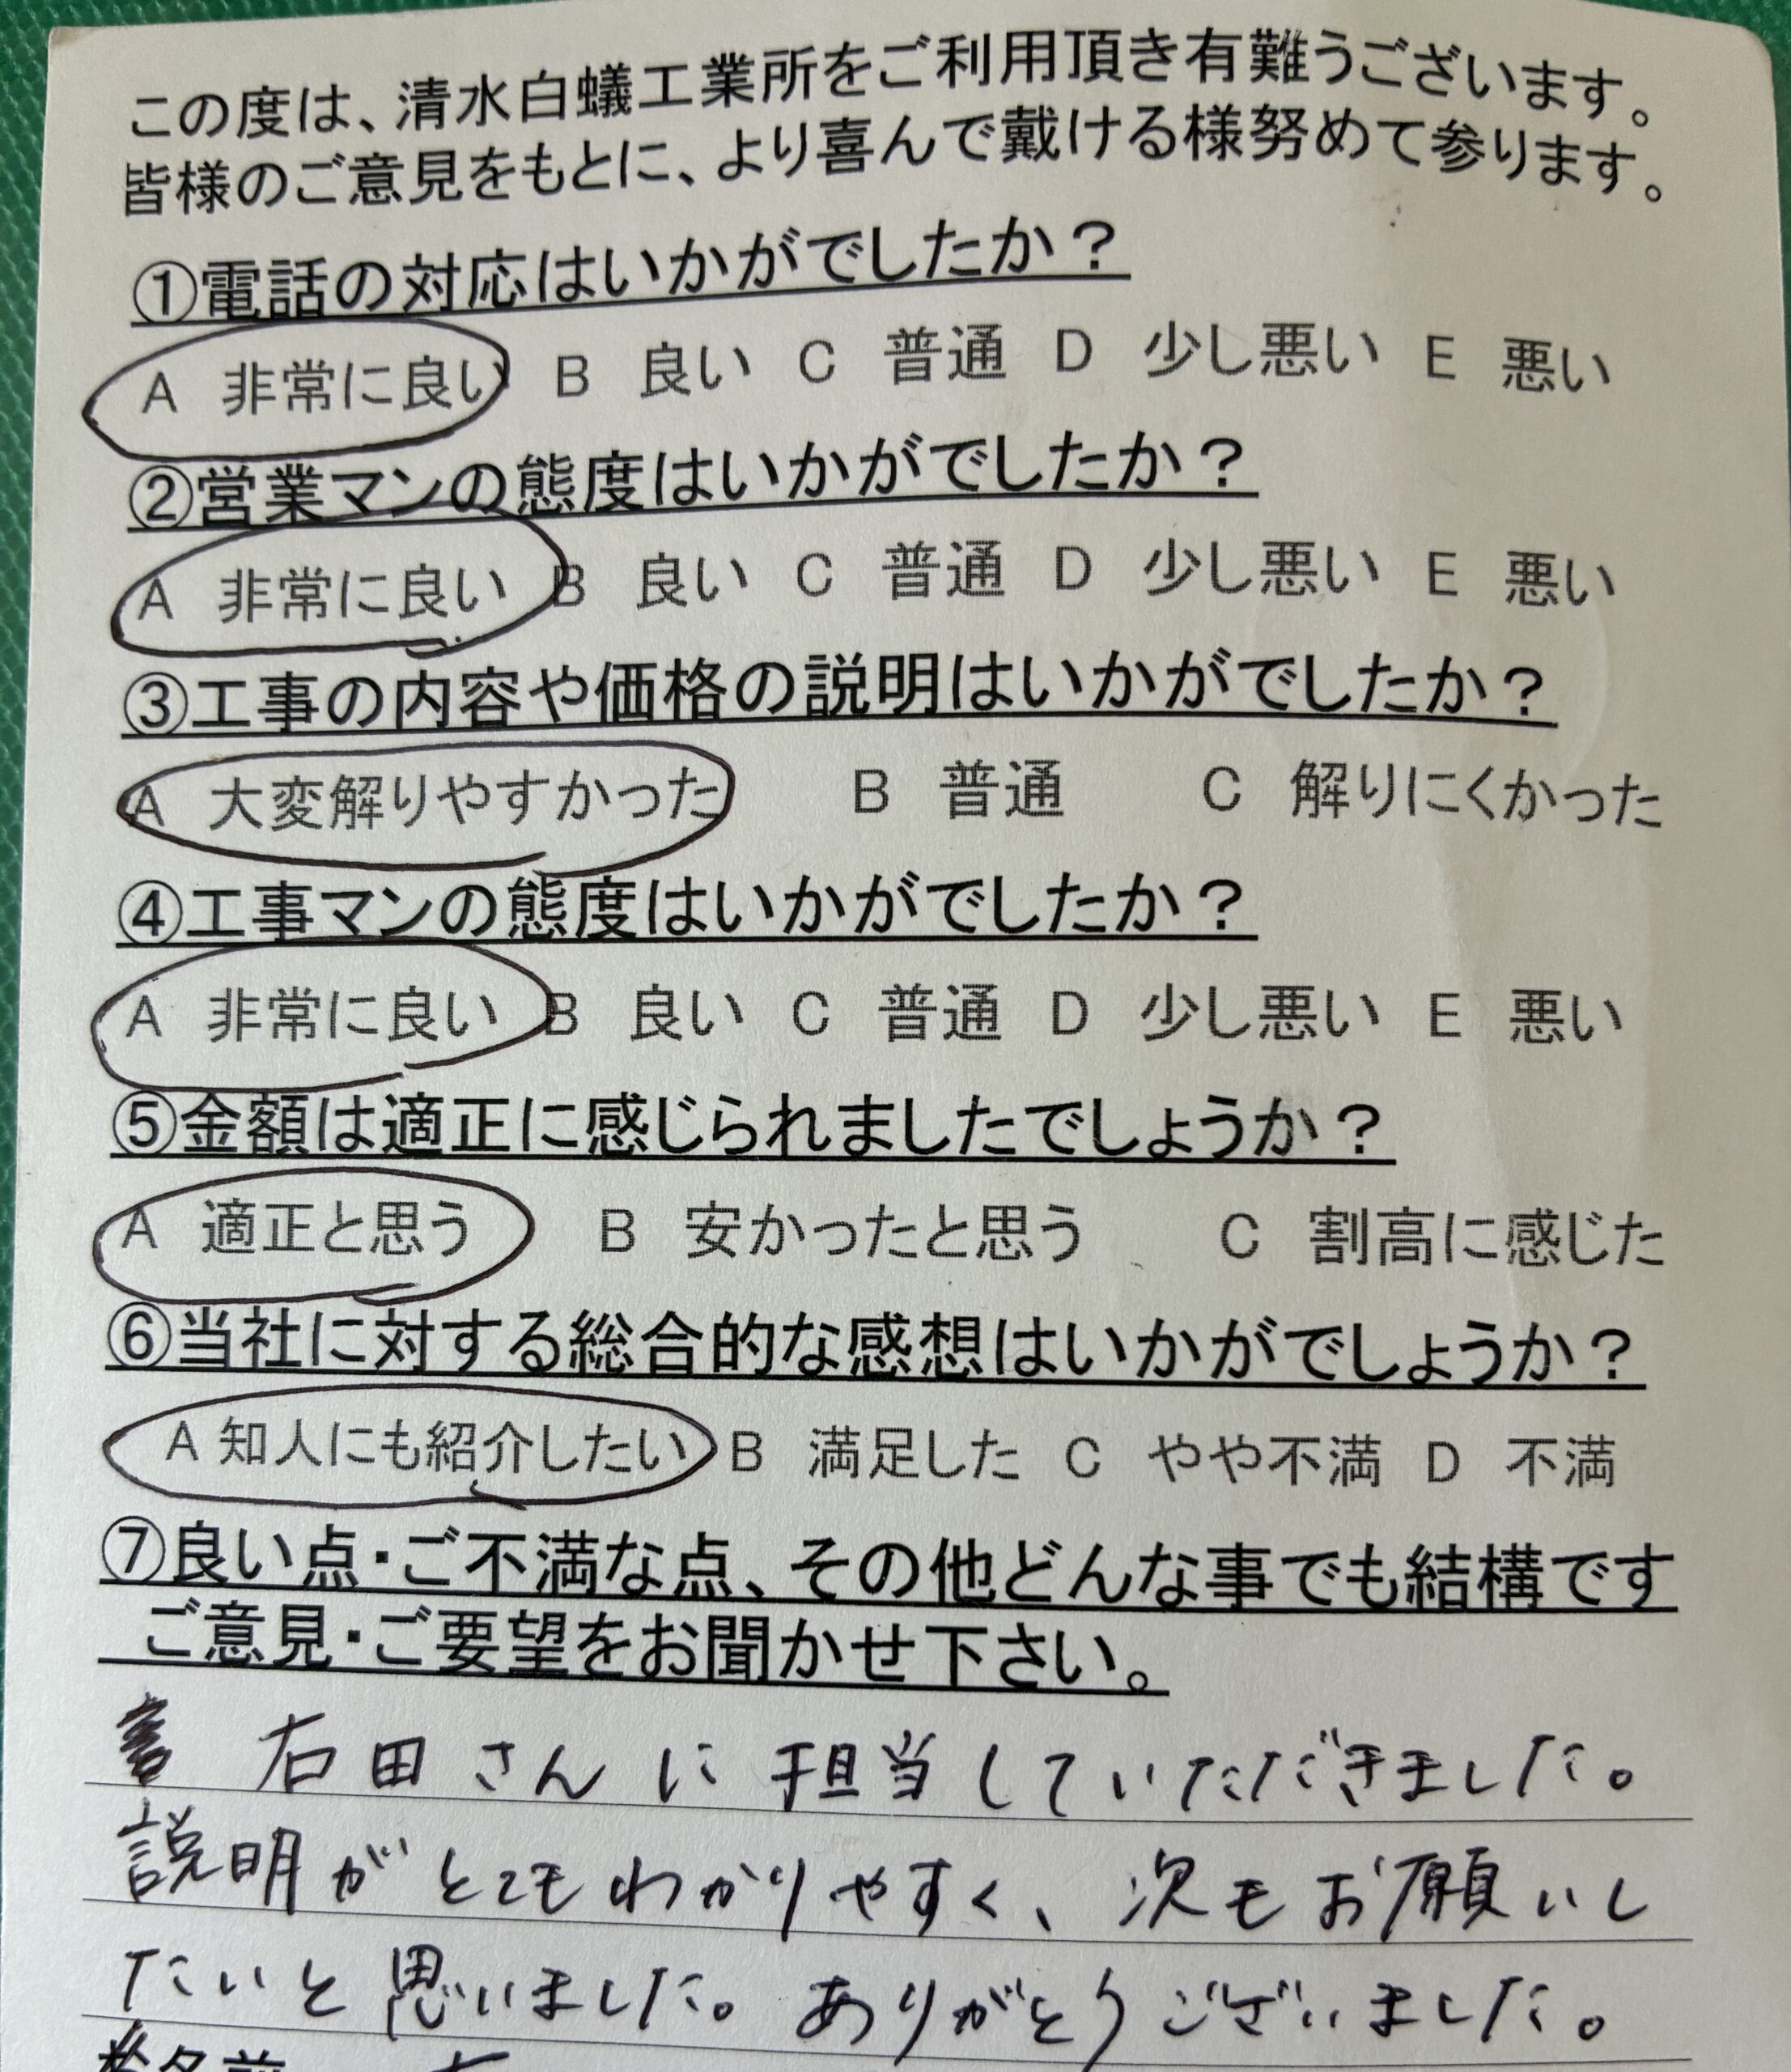 この度は、清水白蟻工業所をご利用頂き有難うございます。
皆様のご意見をもとに、より喜んで戴ける様努めて参ります。
①電話の対応はいかがでしたか？
A 非常に良い B 良い C 普通 D 少し悪い E 悪い
②営業マンの態度はいかがでしたか？
A 非常に良い B 良い C 普通 D 少し悪い E 悪い
③工事の内容や価格の説明はいかがでしたか？
A 大変解りやすかった B 普通 C 解りにくかった
④工事マンの態度はいかがでしたか？
A 非常に良い B 良い C 普通 D 少し悪い E 悪い
⑤金額は適正に感じられましたでしょうか？
A 適正と思う B 安かったと思う C 割高に感じた
⑥当社に対する総合的な感想はいかがでしょうか？
A 知人にも紹介したい B 満足した C やや不満 D 不満
⑦良い点・ご不満な点、その他どんな事でも結構です
ご意見・ご要望をお聞かせ下さい。
右田さんに担当していただきました。
説明がとてもわかりやすく、次もお願いし
たいと思いました。ありがとうございました。